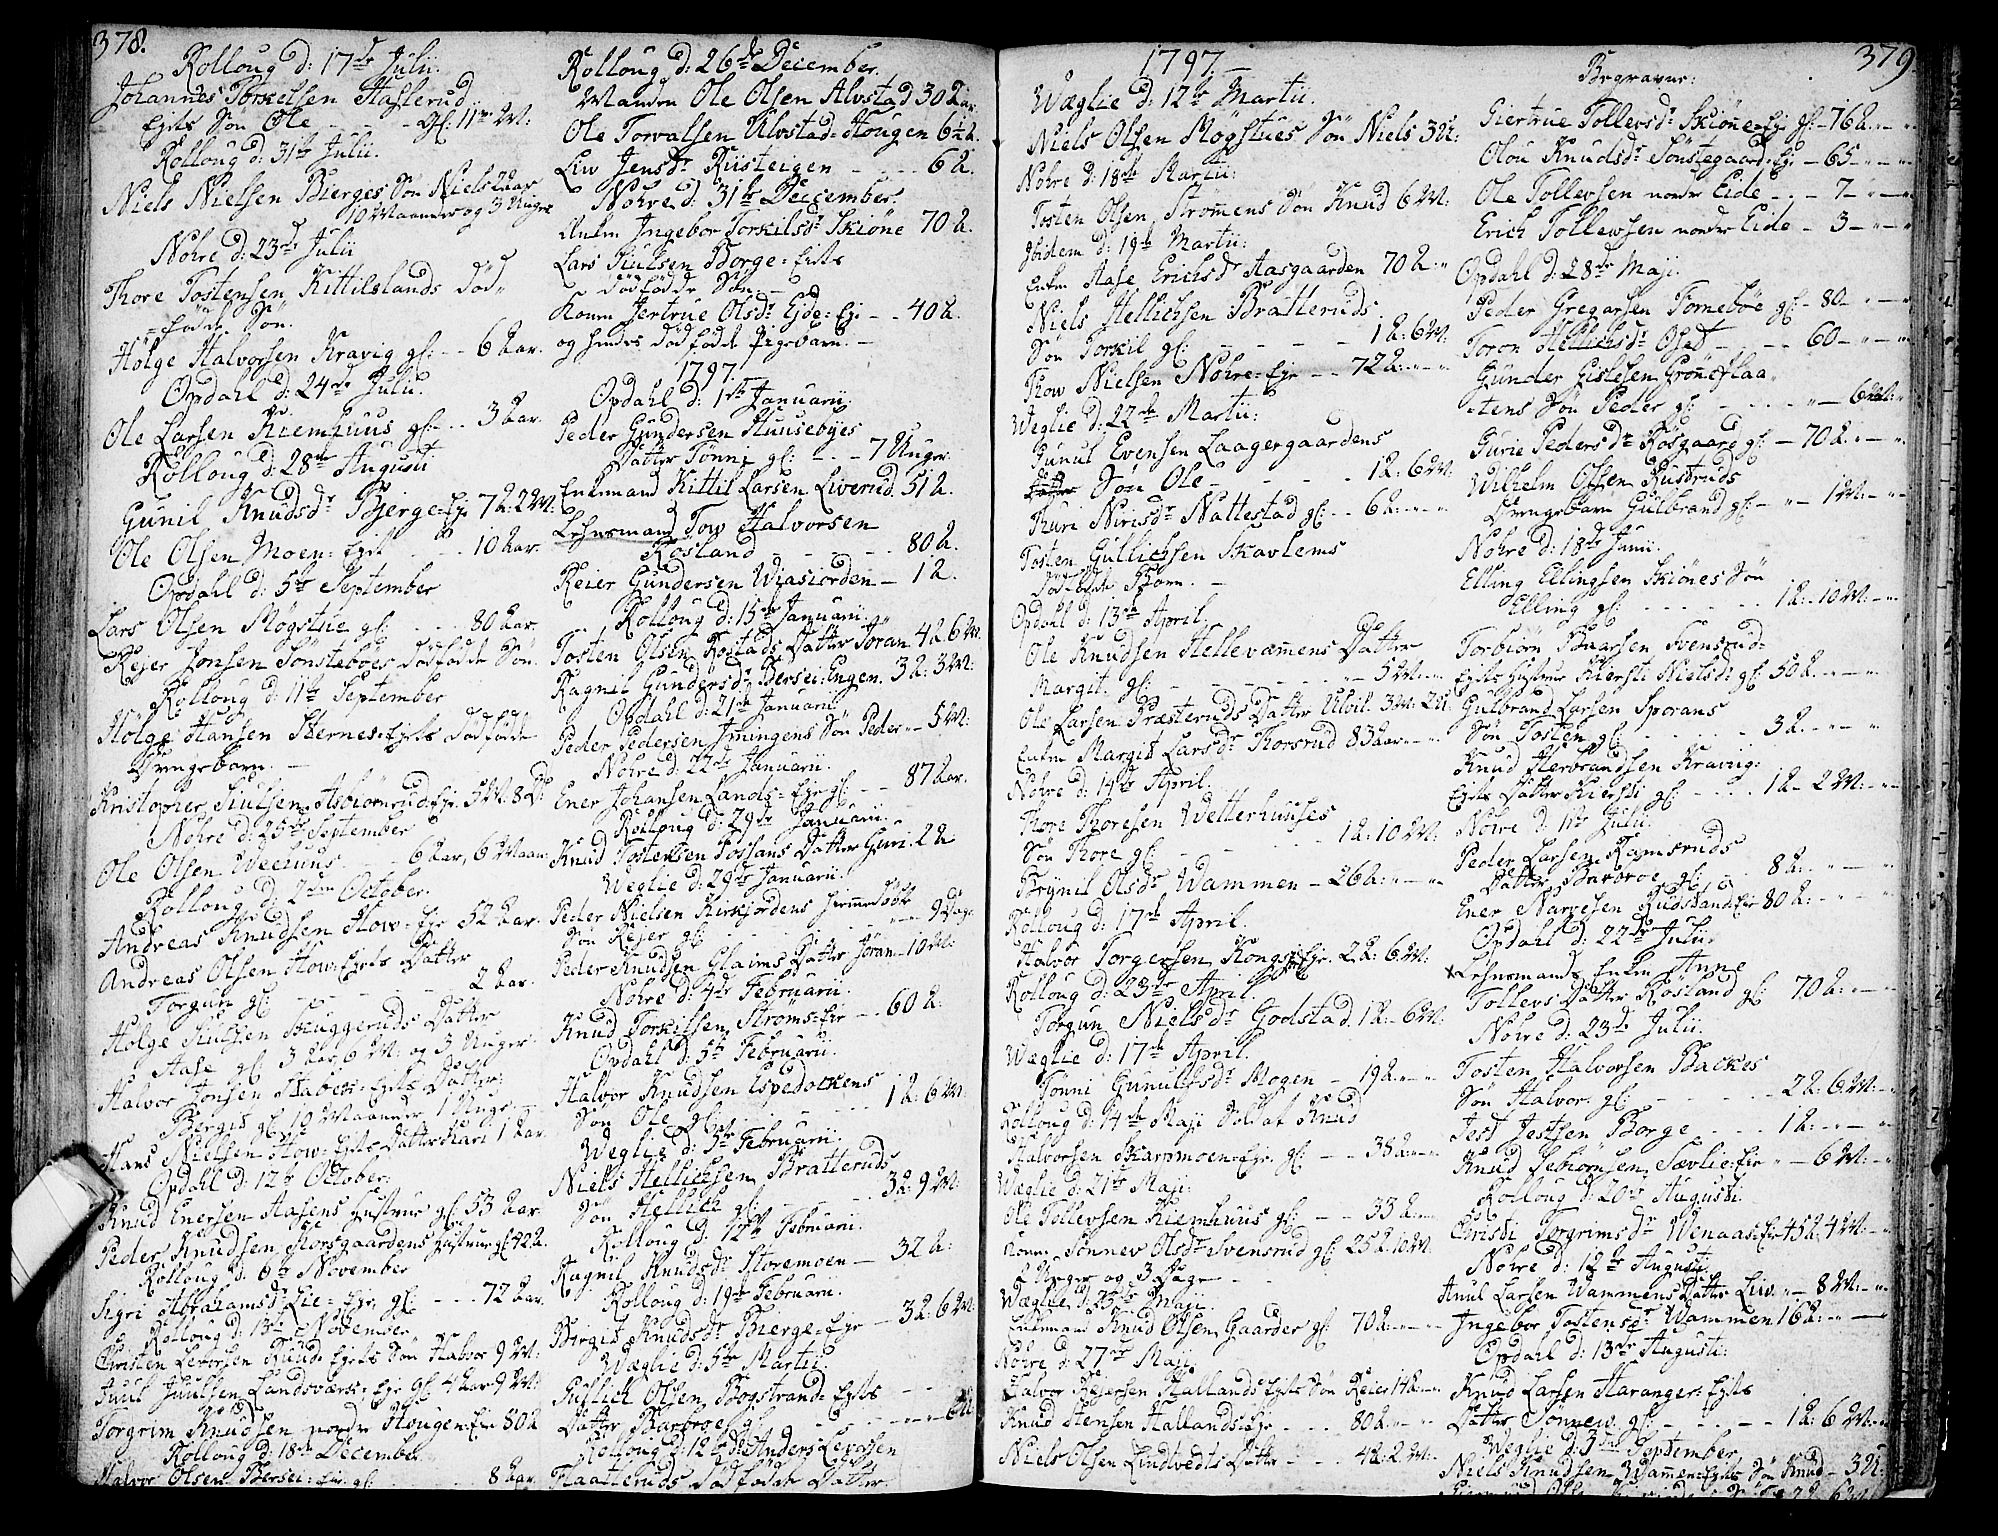 378.
Rolloug d: 17de Julii.
Johannes Torkelsen Haslerud
Ejets Søn Ole - - - gl: 11 W:
Rolloug d: 31te Julii.
Niels Nielsen Bierges Søn Niels 2 aar
10 Maaneder og 3 Uger
Nohre d: 23de Julii
Thore Tostensen Kittilslands død-
=fødde Søn.
Hölge Halvorsen Kravig gl: - - 6 aar.
Opdahl d: 24de Julii.
Ole Larsen Kiemhuus gl: - - 3 aar.
Rolloug d: 28de Augusti
Gunil Knudsdr Bjerge=Eje 7 2: 2 W:
Ole Olsen Moen=Ejet - - - 10 aar.
Opdahl d: 5te September
Lars Olsen Møgstue gl: - - - 80 aar.
Rejer Jonsen Sönsteböes dödfödde Søn.
Rolloug d: 11te September
Hölge Hansen Sternes=Ejets dödfödde
Drengebarn. -
Kristopher Siulsen Asbiörnrud=Eje. 3 W: 8 D:
Nohre d: 25de September
Ole Olsen Weeiuns - - - 6 aar, 6 Maan:
Rolloug d: 2den October.
Andreas Knudsen How=Eje 52 aar.
Andreas Olsen How=Ejets Datter
Torgun gl: - - - - - 2 aar.
Holge Siulsen Skuggeruds Datter
Aase gl: 3 aar 6 W: og 3 Uger.
Halvor Jonsen Staben=Ejets Datter
Bergit gl: 10 Maaneder, 1 Uge. -
Hans Nielsen How=Ejets Datter Kari 1 aar.
Opdahl d: 12te October:
Knud Enersen Aasens Hustrue gl: 53 aar.
Peder Knudsen Korsgaardens Hustrue gl: 42 2.
Rolloug d: 6te November
Sigri Abrahamsdr Lie=Eje gl: - - - 72 aar.
Rolloug d: 13de November
Christen Levorsen Ruud=Ejets Søn Halvor 9 W:
Juul Juulsen Landsværk=Eje gl: 4 aar 9 W:
Torgrim Knudsen nordre Hougen=Eje 80 2
Rolloug d: 18de December
Halvor Olsen Bersei=Eje gl: - - - 8 aar.
Rolloug d: 26de December.
Manden Ole Olsen Alvstad 30 2 ar
Ole Torvalsen Alvstad=Hougen 6½ 2.
Liv Jensdr Kiisteigen - - - 6 2.
Nohre d: 31te December.
Enken Ingebor Torkilsdr Skiöne 70 2.
Lars Siulsen Borge=Ejets
dödfödde Søn. -
Konen Jertrue Olsdr Ejde=Eje - - 40 2.
og hendes dödfödde Pigebarn. -
1797.
Opdahl d: 1ste Januarii.
Peder Gundersen Huusebyes
Datter Tönne gl: - - - 7 Uger
Enkemand Kittil Larsen Liverud. 51 2.
Lehnsmand Tow Halvorsen
Rosland - - - - 80 2.
Reier Gundersen Wiasiorden - 1 2.
Rolloug d: 15de Januarii.
Tosten Olsen Rostads Datter Jöran 4 2. 6 W.
Ragnil Gundersdr Bersei=Engen. 3 2: 3 W:
Opdahl d: 21de Januarii.
Peder Pedersen Imingens Søn Peder - 5 W:
Nohre d: 22de Januarii.
Ener Johansen Lands=Eje gl: - - 87 aar.
Rolloug d: 29de Januarii.
Knud Tostensen Fossans Datter Guri. 2 2
Weglie d: 29de Januarii.
Peder Nielsen Kirkjordens hiemedöbte
Søn Rejer gl: - - - - 9 Dage
Peder Knudsen Glaims Datter Jöran - 10 W:
Nohre d: 4de Februarii
Knud Torkilsen Ströms=Eje - - 60 2:
Opdahl d: 5te Februarii.
Halvor Knudsen Espedockens
Søn Ole gl: - - - - - 1 2: 6 W:
Weglie d: 5te Februarii.
Niels Hellichsen Bratteruds
Søn Hellich gl: - - - - 3 2: 9 W:
Rolloug d: 12te Februarii.
Ragnil Knudsdr Storemoen - 32 2:
Rolloug d: 19de Februarii.
Borgit Knudsdr Bierge=Eje - 3 2: 6 W:
Weglie d: 5te Martii.
Gullich Olsen Bogstrand=Ejets
Datter Barbroe gl: - - - - 6 U:
Rolloug d: 12te d: Anders Levorsen
Flaatteruds dödfödde Datter.
1797 -
Wæglie d: 12te Martii.
Niels Olsen Møgstues Søn Niels 3 U:
Nohre d: 18de Martii:
Tosten Olsen Strömmens Søn Knud 6 W:
Ibidem d: 19de Martii:
Enken Aase Erichsdr Aasgaarden 70 2:
Niels Hellichsen Bratteruds
Søn Torkil gl: - - - - - 1 2: 6 W:
Tow Nielsen Nohre=Eje - - 72 2:
Weglie d: 22de Martii:
Gunul Evensen Laagergaardens
Søn Ole - - - - - 1 2: 6 W:
Thuri Nirisdr Nattestad gl: - - 6 2:
Tosten Gullichsen Skavlems
dödfödte Barn. -
Opdahl d: 13de April.
Ole Knudsen Hellevammens Datter
Margit gl: - - - - - - 5 W:
Ole Larsen Præsteruds Datter Ulvil. 3 W: 2 U:
Enken Margit Larsdr Thorsrud 83 aar
Nohre d: 14de April.
Thore Thoresen Wetterhuuses
Søn Thore gl: - - - - 1 2: 10 W:
Brynil Olsdr Wammen - 26 2:
Rolloug d: 17de April.
Halvor Torgersen Kongs=Eje. 2 2: 6 W:
Rolloug d: 23de April.
Torgun Nielsdr Godstad. 1 2: 6 W:
Wæglie d: 17de April.
Tönni Gunulfsdr Mogen - 19 2:
Rolloug d: 14de Maji Soldat Knud
Halvorsen Skarpmoen=Eje gl: - - 38 2:
Wæglie d: 21de Maji.
Ole Tollevsen Kiemhuus gl: - - 33 2:
Konen Sönnev Olsdr Svensrud gl: 25 2. 10 W:
2 Uger og 3 Dage -
Wæglie d: 25de Maji.
Enkemand Knud Olsen Gaarder gl: 70 2:
Nohre d: 27de Maji.
Halvor Rejersen Hallands=Ejets Søn Reier 14 2:
Knud Stensen Hallands=Eje - - - 80 2:
Niels Olsen Lindtvedts Datter - - - 4 2: 2 W:
379.
Begravne:
Giertrue Tollevsdr Skiönne=Eje gl: - 76 2:
Olou Knudsdr Sönstegaard=Eje - 65
Ole Tollevsen nordre Eide - - - 7
Erich Tollevsen nordre Eide - 3
Opdahl d: 28de Maji.
Peder Gregarsen Tornebøe gl: - 80
Toron Hellichsdr Oset - - - 60
Gunder Gislesen Gröneflaa-
=tens Søn Peder gl: - - - - 6 W:
Gurie Pedersdr Rösgaard gl: - 70 2:
Wilhelm Olsen Rustruds
Drengebarn Gulbrand gl: - - 1 W:
Nohre d: 18de Junii.
Elling Ellingsen Skiönes Søn
Elling gl: - - - - - 1 2: 10 W:
Torbiörn Baarsen Svensrud=
Ejets Hustrue Kiersti Nielsdr gl: 50 2:
Gulbrand Larsen Sporans
Søn Tosten gl: - - - - - 3 2:
Knud Herbrandsen Kravig=
Ejets Datter Kiersti gl: - - - 1 2 - 2 W:
Nohre d: 11te Julii.
Peder Larsen Ramsruds
Datter Barbroe gl: - - - 8 2:
Ener Narvesen Rudstand=Eje 80 2:
Opdahl d: 22de Julii.
x Lehnsmands Enken Anne
Tollevs Datter Rösland gl: 70 2:
Nohre d: 23de Julii.
Tosten Halvorsen Backes
Søn Halvor gl: - - - - 2 2: 6 W:
Jest Jestsen Borge - - - 1 2:
Knud Sebiörnsen Sævlie=Eje - 6 W:
Rolloug d: 20de Augusti
Christi Torgrimsdr Wenaas=Eje 45 2. 4 W:
Nohre d: 12te Augusti
Anul Larsen Wammens Datter Liv. - 8 W:
Ingebor Tostensdr Wammen 16 2:
Opdahl d: 13de Augusti:
Knud Larsen Haranger=Ejets
Datter Sönnew gl: - - - - 1 2: 6 W:
Weglie d: 3die September
Niels Knudsen Wammen=Ejets Søn Knud - 3 U: